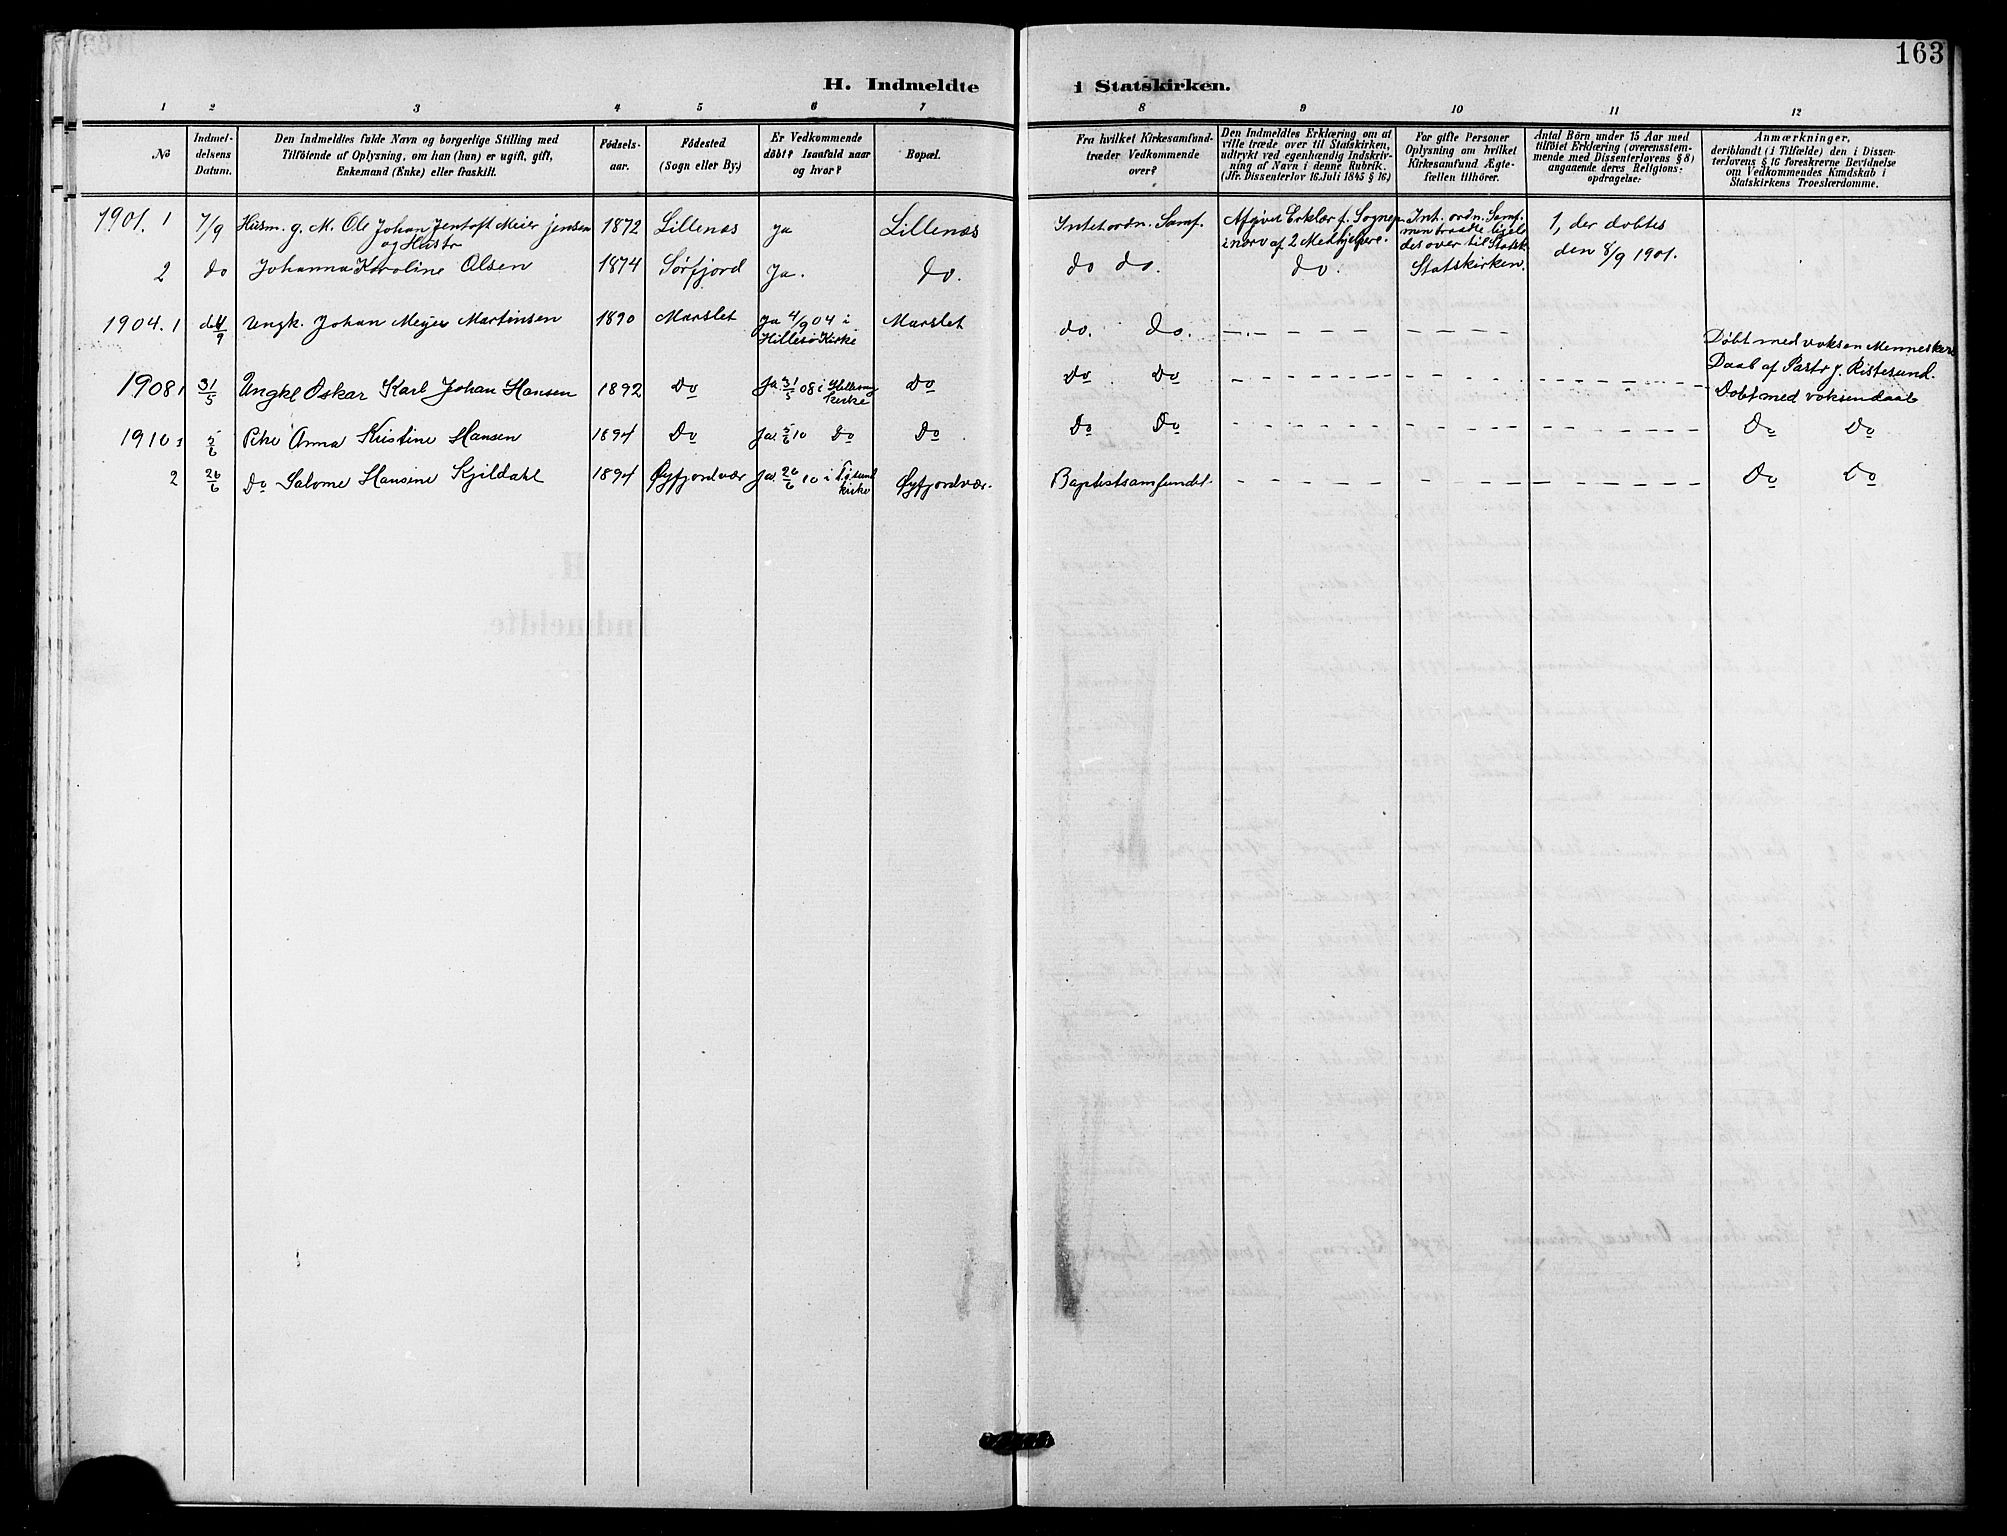 163
H. Indmeldte i Statskirken.
1 2 3 4 5 6 7 8 9 10 11 12
No
Indmel-
delsens
Datum.
Den Indmeldtes fulde Navn og borgerlige Stilling med
Tilföiende af Oplysning, om han (hun) er ugift, gift,
Enkemand (Enke) eller fraskilt.
Födsels-
aar.
Födested
(Sogn eller By.)
Er Vedkommende
döbt? Isaafald naar
og hvor?
Bopæl.
Fra hvilket Kirkesamfund
træder Vedkommende
over?
Den Indmeldtes Erklæring om at
ville træde over til Statskirken,
udtrykt ved egenhændig Indskriv-
ning af Navn i denne Rubrik.
(Jfr. Dissenterlov 16. Juli 1845 § 16)
For gifte Personer
Oplysning om hvilket
Kirkesamfund Ægte-
fællen tilhörer.
Antal Börn under 15 Aar med
tilföiet Erklæring (overensstem-
mende med Dissenterlovens § 8)
angaaende deres Religions-
opdragelse.
Anmærkninger,
deriblandt (i Tilfælde) den i Dissen-
terlovens § 16 foreskrevne Bevidnelse
om Vedkommendes Kundskab i
Statskirkens Troeslærdomme.
1901. 1 7/9 Husm. g. M. Ole Johan Jentoft Meier Jensen 1872 Lillenæs ja Lillenæs Intet ordn. Samf. Afgivet Erklær. f. Sognepr. Int. ordn. Samf. 1, der döbtes
og Hustr i nærv af 2 Medhjelpere. men traadte ligele-
des over til Statsk. den 8/9 1901.
2 do Johanna Karoline Olsen 1874 Sörfjord Ja. do. do do. do. Statskirken.
1904. 1 4/9 Ungk. Johan Meyer Martinsen 1890 Marslet ja 4/9 04 i Marslet do. do.
Hillesö Kirke
Döbt med voksen Menneskers
Daab af Pastor J. Ristesund.
1908 1 31/5 Ungkl Oskar Karl Johan Hansen 1892 Do Ja 31/5 08 i Do Do Do Döbt med voksendaab
kirke
1910 1 5/6 Pike Anna Kristine Hansen 1894 Do Ja. 5/6 10 Do Do Do Do Do Do
2 26/6 Do Salome Hansine Kjildahl 1894 Öyfjordvær Ja. 26/6 10 i Öyfjordvær. Baptistsamfundet. Do Do
kirke